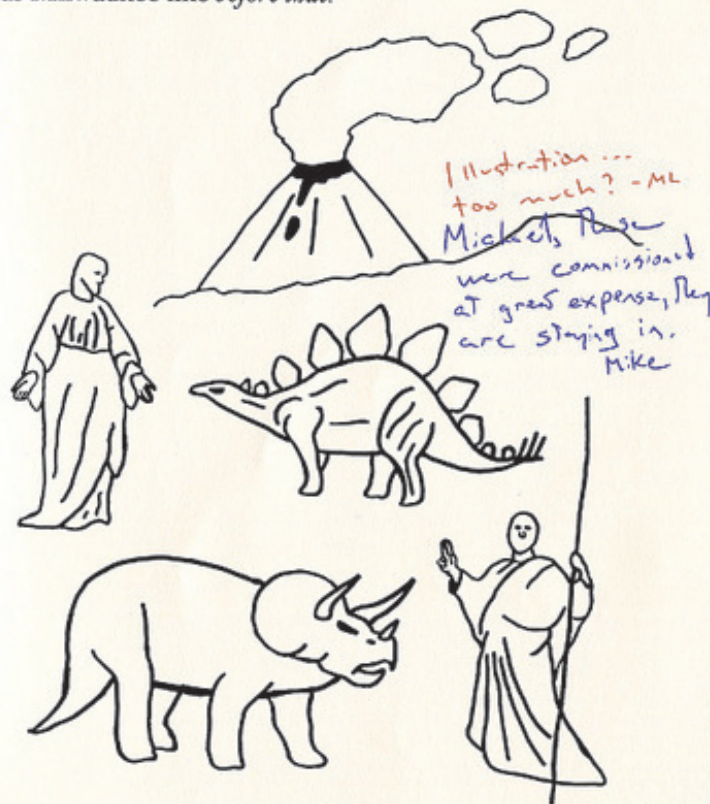 before that.
Illustration ...
too much? -ML
Michael, these
were commissioned
at great expense, they
are staying in.
Mike